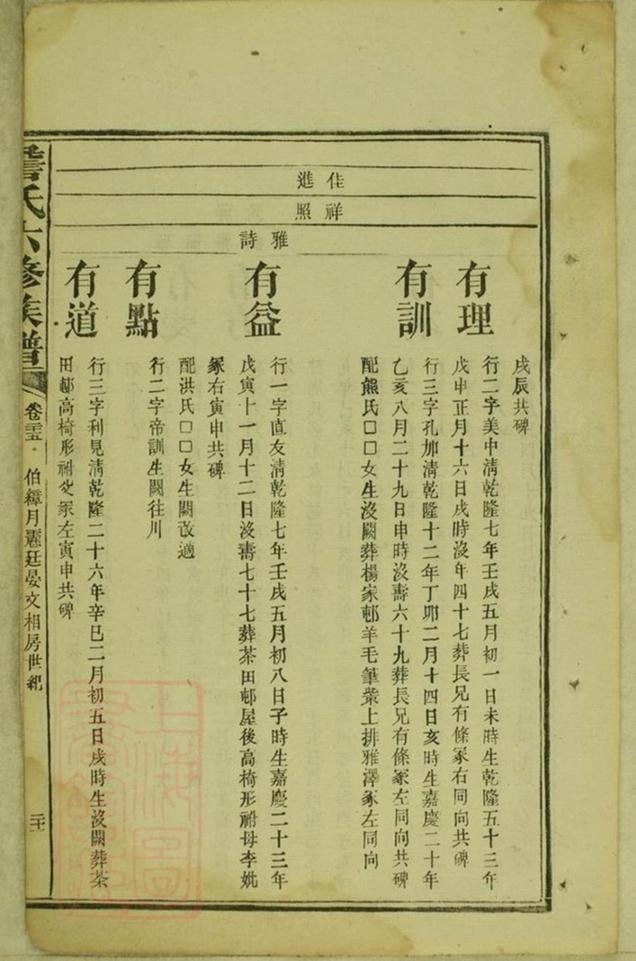 佳進
祥照
雅詩
戌辰共碑
有理
行二字美中淸乾隆七年壬戌五月初一日未時生乾隆五十三年
戊申正月十六日戌時沒年四十七葬長兄有條冢右同向共碑
有訓
行三字孔加淸乾隆十二年丁卯二月十四日亥時生嘉慶二十年
乙亥八月二十九日申時沒壽六十九葬長兄有條冢左同向共碑
配熊氏□□女生沒闕葬楊家邨羊毛筆業上排雅澤冢左同向
有益
行一字直友淸乾隆七年壬戌五月初八日子時生嘉慶二十三年
戊寅十一月十二日沒壽七十七葬茶田邨屋後高椅形祔母李妣
冢右寅申共碑
配洪氏□□女生闕改適
有點
行二字帝訓生闕往川
有道
行三字利見淸乾隆二十六年辛巳二月初五日戌時生沒闕葬茶
田邨高椅形祔父冢左寅申共碑
詹氏六修族譜
卷三五 伯緯月麗廷晏文相房世紀
二十